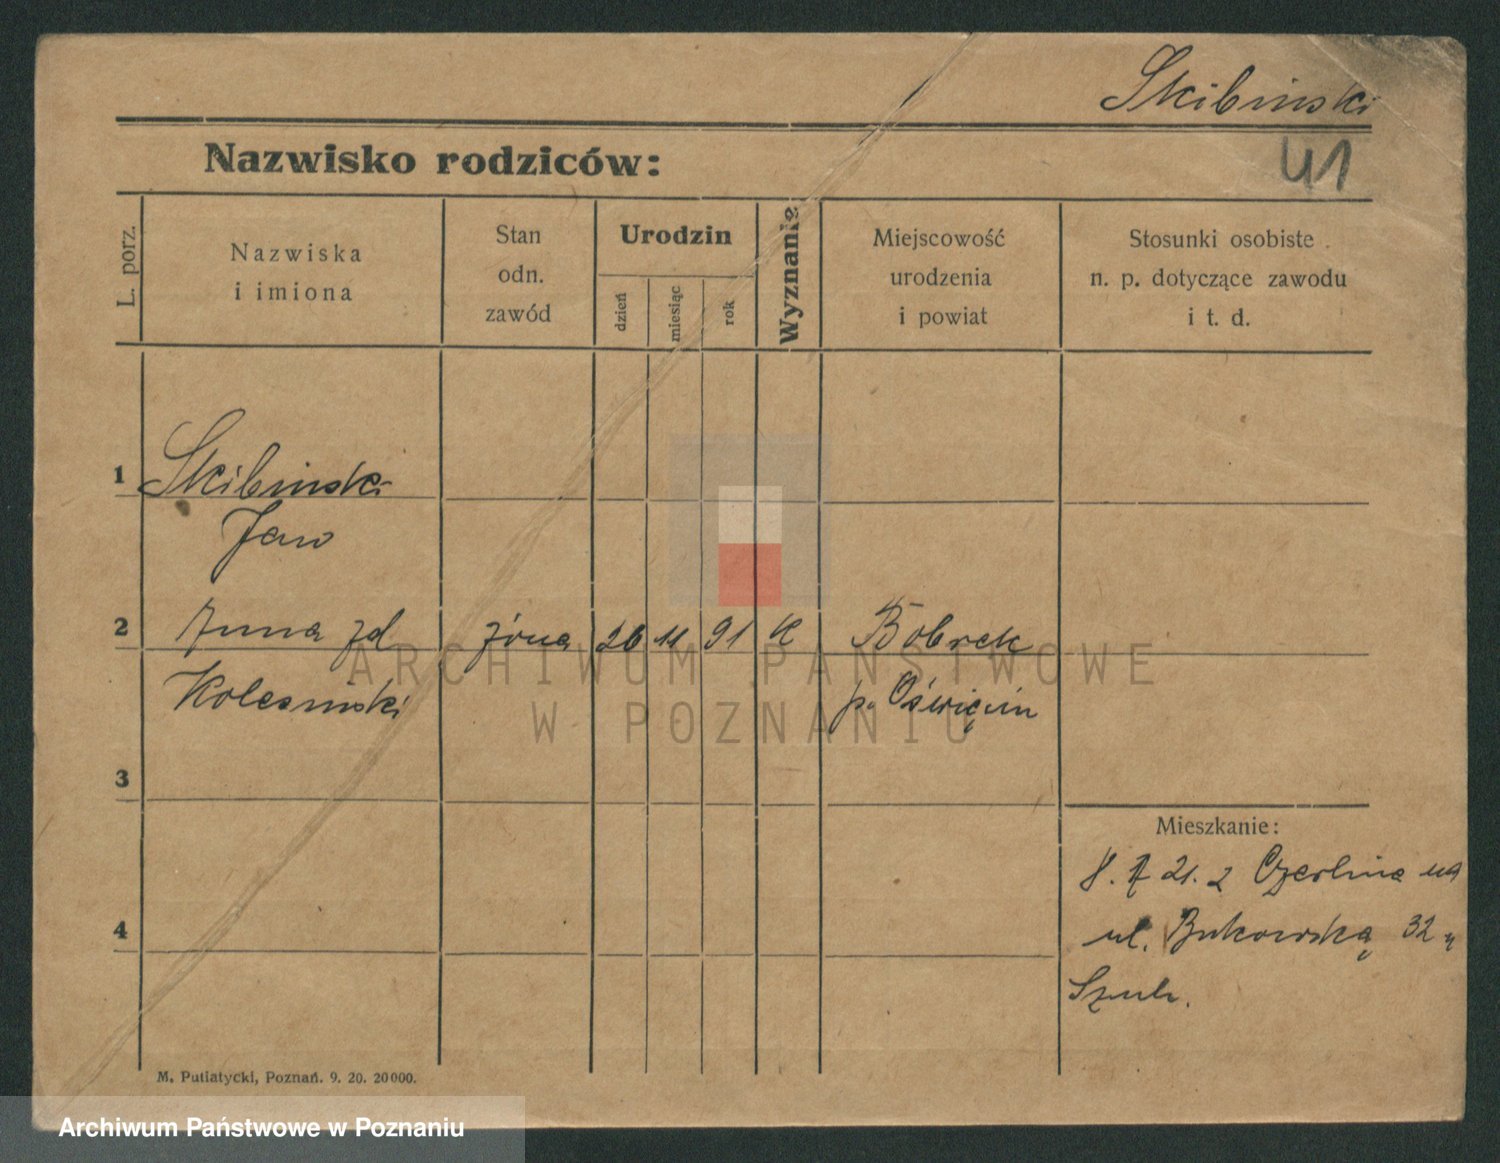 Skibinski
41
Nazwisko rodziców:
L. porz.
Nazwiska
i imiona
Stan
odn.
zawód
Urodzin
dzień
miesiąc
rok
Wyznanie
Miejscowość
urodzenia
i powiat
Stosunki osobiste
n. p. dotyczące zawodu
i t. d.
1 Skibinski
Jan
2 Anna zd żona 26 11 91 K Bobrek
Kolesinski p. Oświęcim
3
Mieszkanie:
21. 2 Czerlina na
4 ul. Bukowską 32
M. Putiatycki, Poznań. 9. 20. 20000.
ARCHIWUM PAŃSTWOWE
W POZNANIU
Archiwum Państwowe w Poznaniu